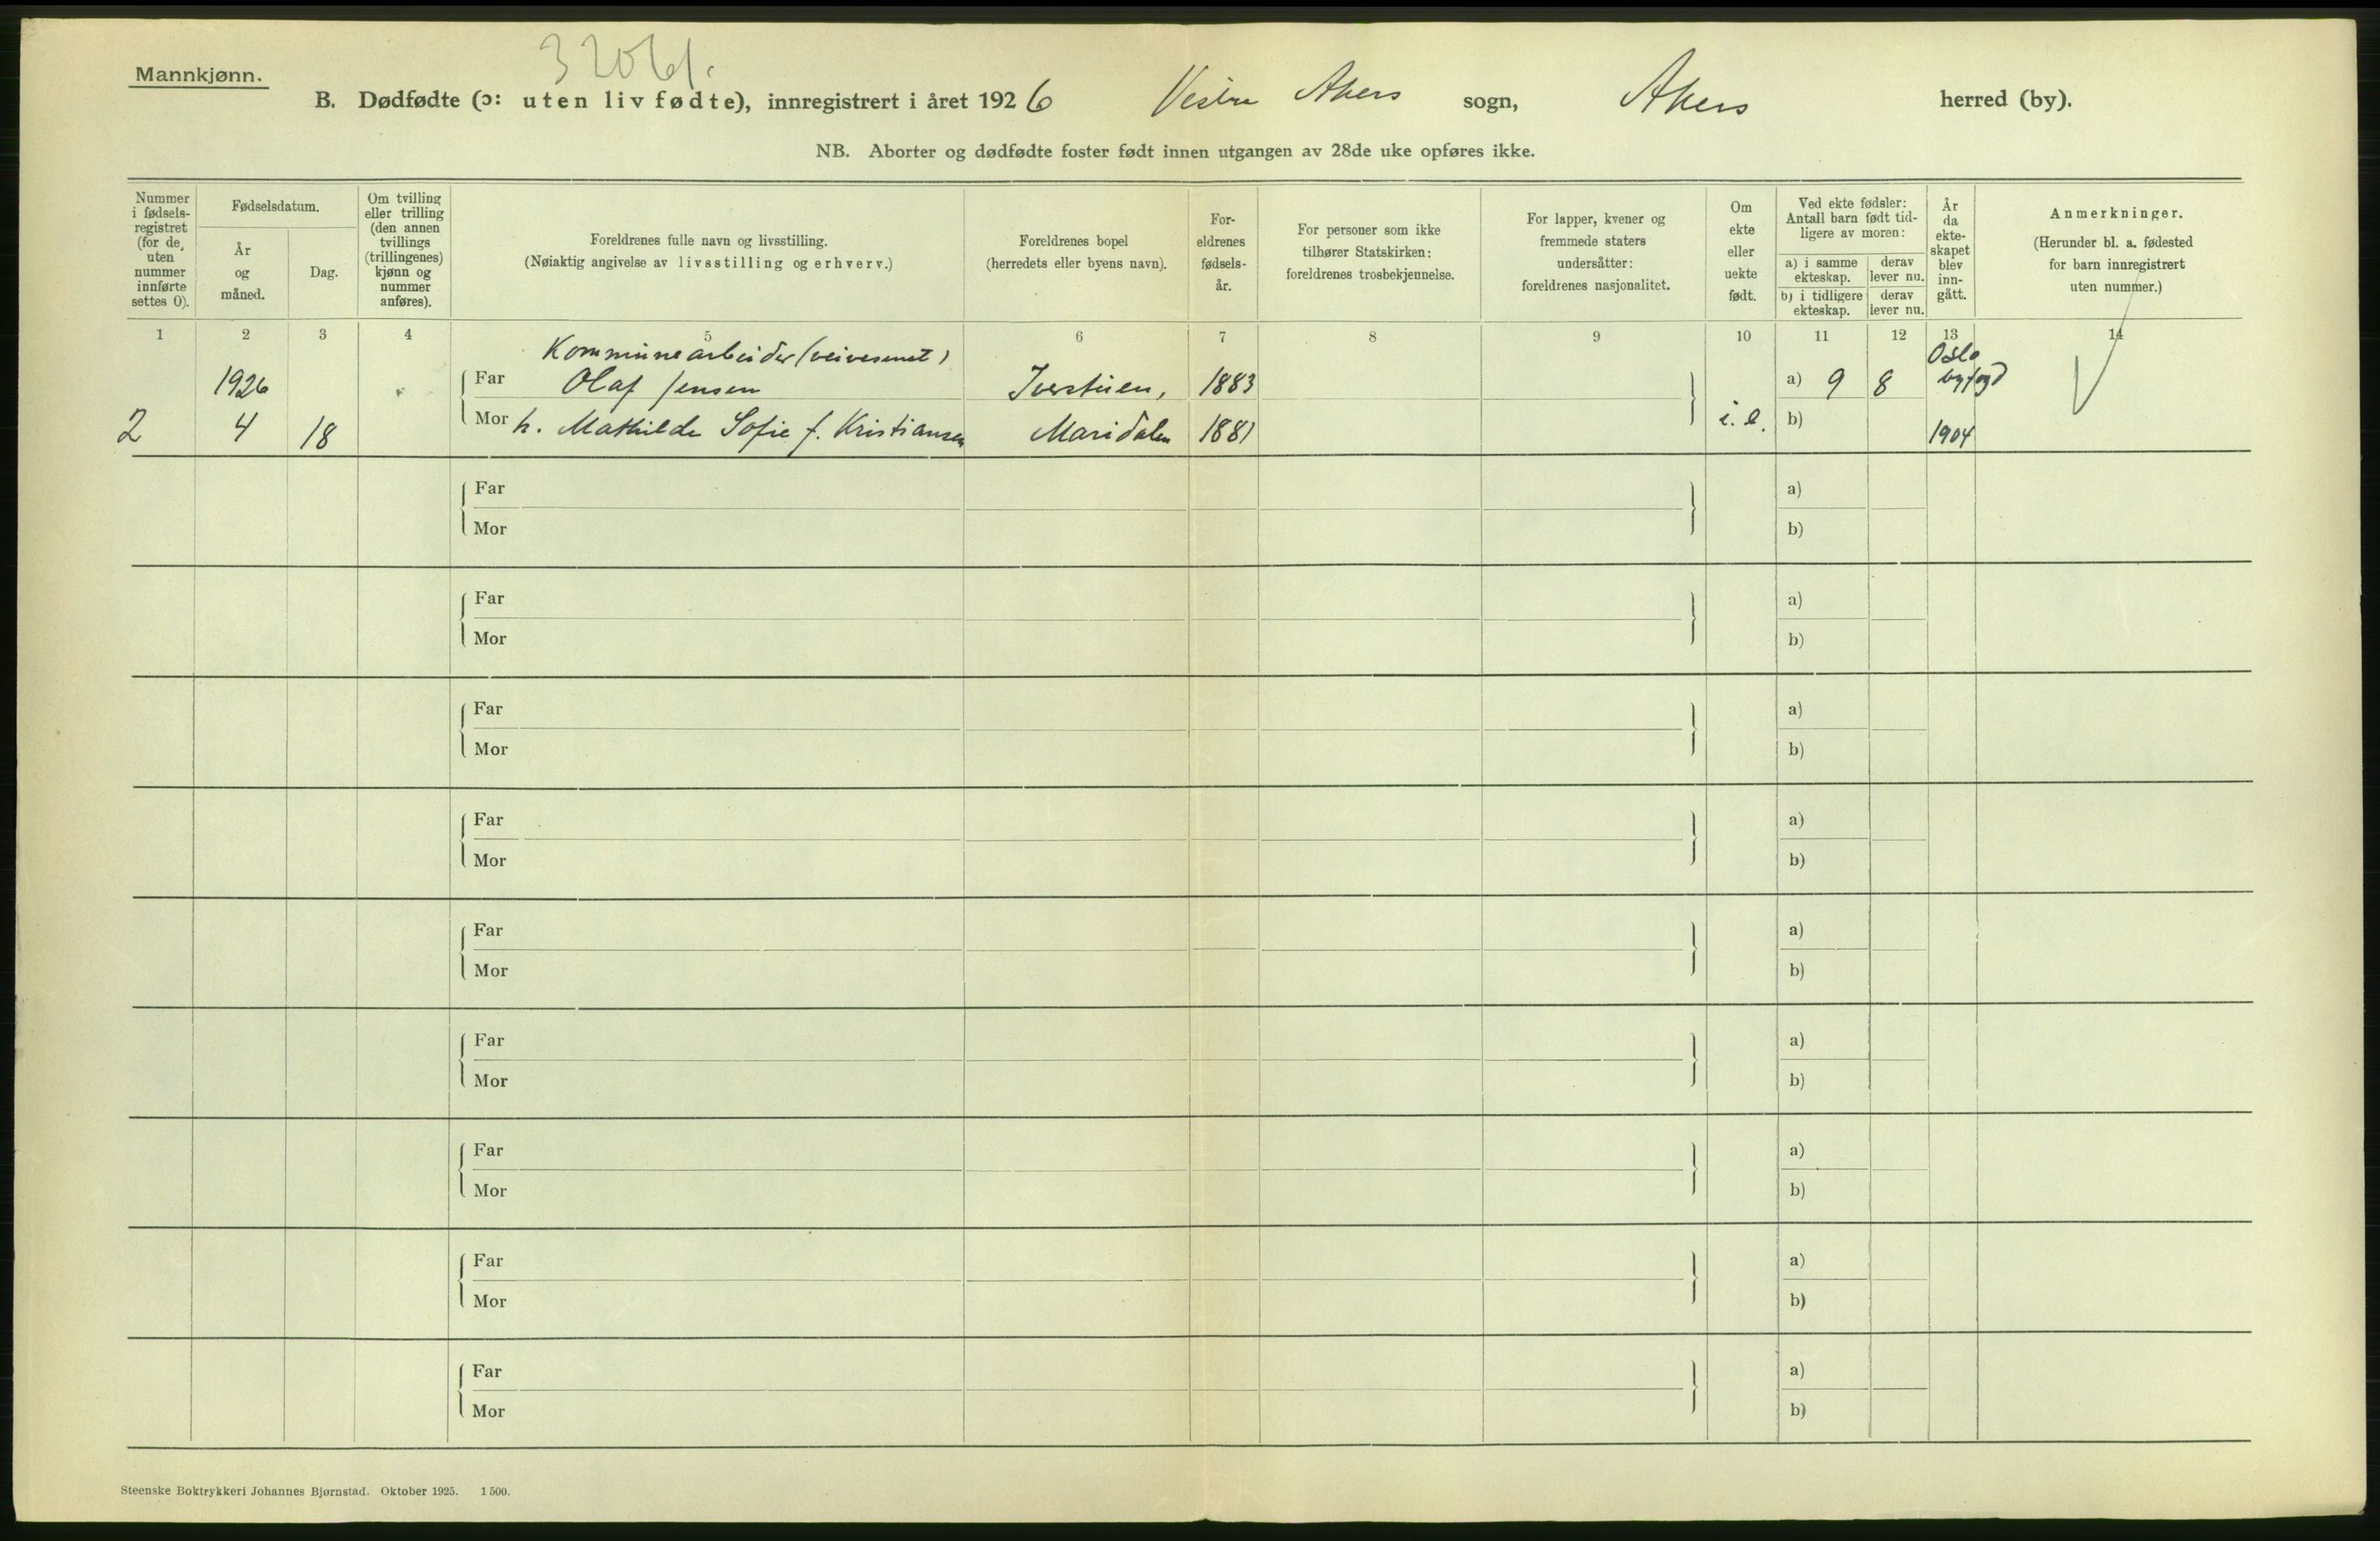 Mannkjønn.
B. Dødfødte (ɔ: uten liv fødte), innregistrert i året 1926 Vestre Akers sogn, Akers herred (by).
NB. Aborter og dødfødte foster født innen utgangen av 28de uke opføres ikke.
Nummer
i fødsels-
registret
(for de
uten
nummer
innførte
settes 0).
Fødselsdatum.
År
og
måned.
Dag.
Om tvilling
eller trilling
(den annen
tvillings
(trillingenes)
kjønn og
nummer
anføres).
Foreldrenes fulle navn og livsstilling.
(Nøiaktig angivelse av livsstilling og erhverv.)
Foreldrenes bopel
(herredets eller byens navn).
For-
eldrenes
fødsels-
år.
For personer som ikke
tilhører Statskirken:
foreldrenes trosbekjennelse.
For lapper, kvener og
fremmede staters
undersåtter:
foreldrenes nasjonalitet.
Om
ekte
eller
uekte
født.
Ved ekte fødsler:
Antall barn født tid-
ligere av moren:
a) i samme
ekteskap.
derav
lever nu.
b) i tidligere
ekteskap.
derav
lever nu.
År
da
ekte-
skapet
blev
inn-
gått.
Anmerkninger.
(Herunder bl. a. fødested
for barn innregistrert
uten nummer.)
1 2 3 4 5 6 7 8 9 10 11 12 13 14
Kommunearbeider (veivesenet) Oslo
1926 Far Olaf Jensen Iverstuen, 1883 a) 9 8 byfogd
2 4 18 Mor h. Mathilde Sofie f. Kristiansen Maridalen 1881 i. e. b) 1904
Far a)
Mor b)
Far a)
Mor b)
Far a)
Mor b)
Far a)
Mor b)
Far a)
Mor b)
Far a)
Mor b)
Far a)
Mor b)
Far a)
Mor b)
Far a)
Mor b)
Steenske Boktrykkeri Johannes Bjørnstad. Oktober 1925. 1500.